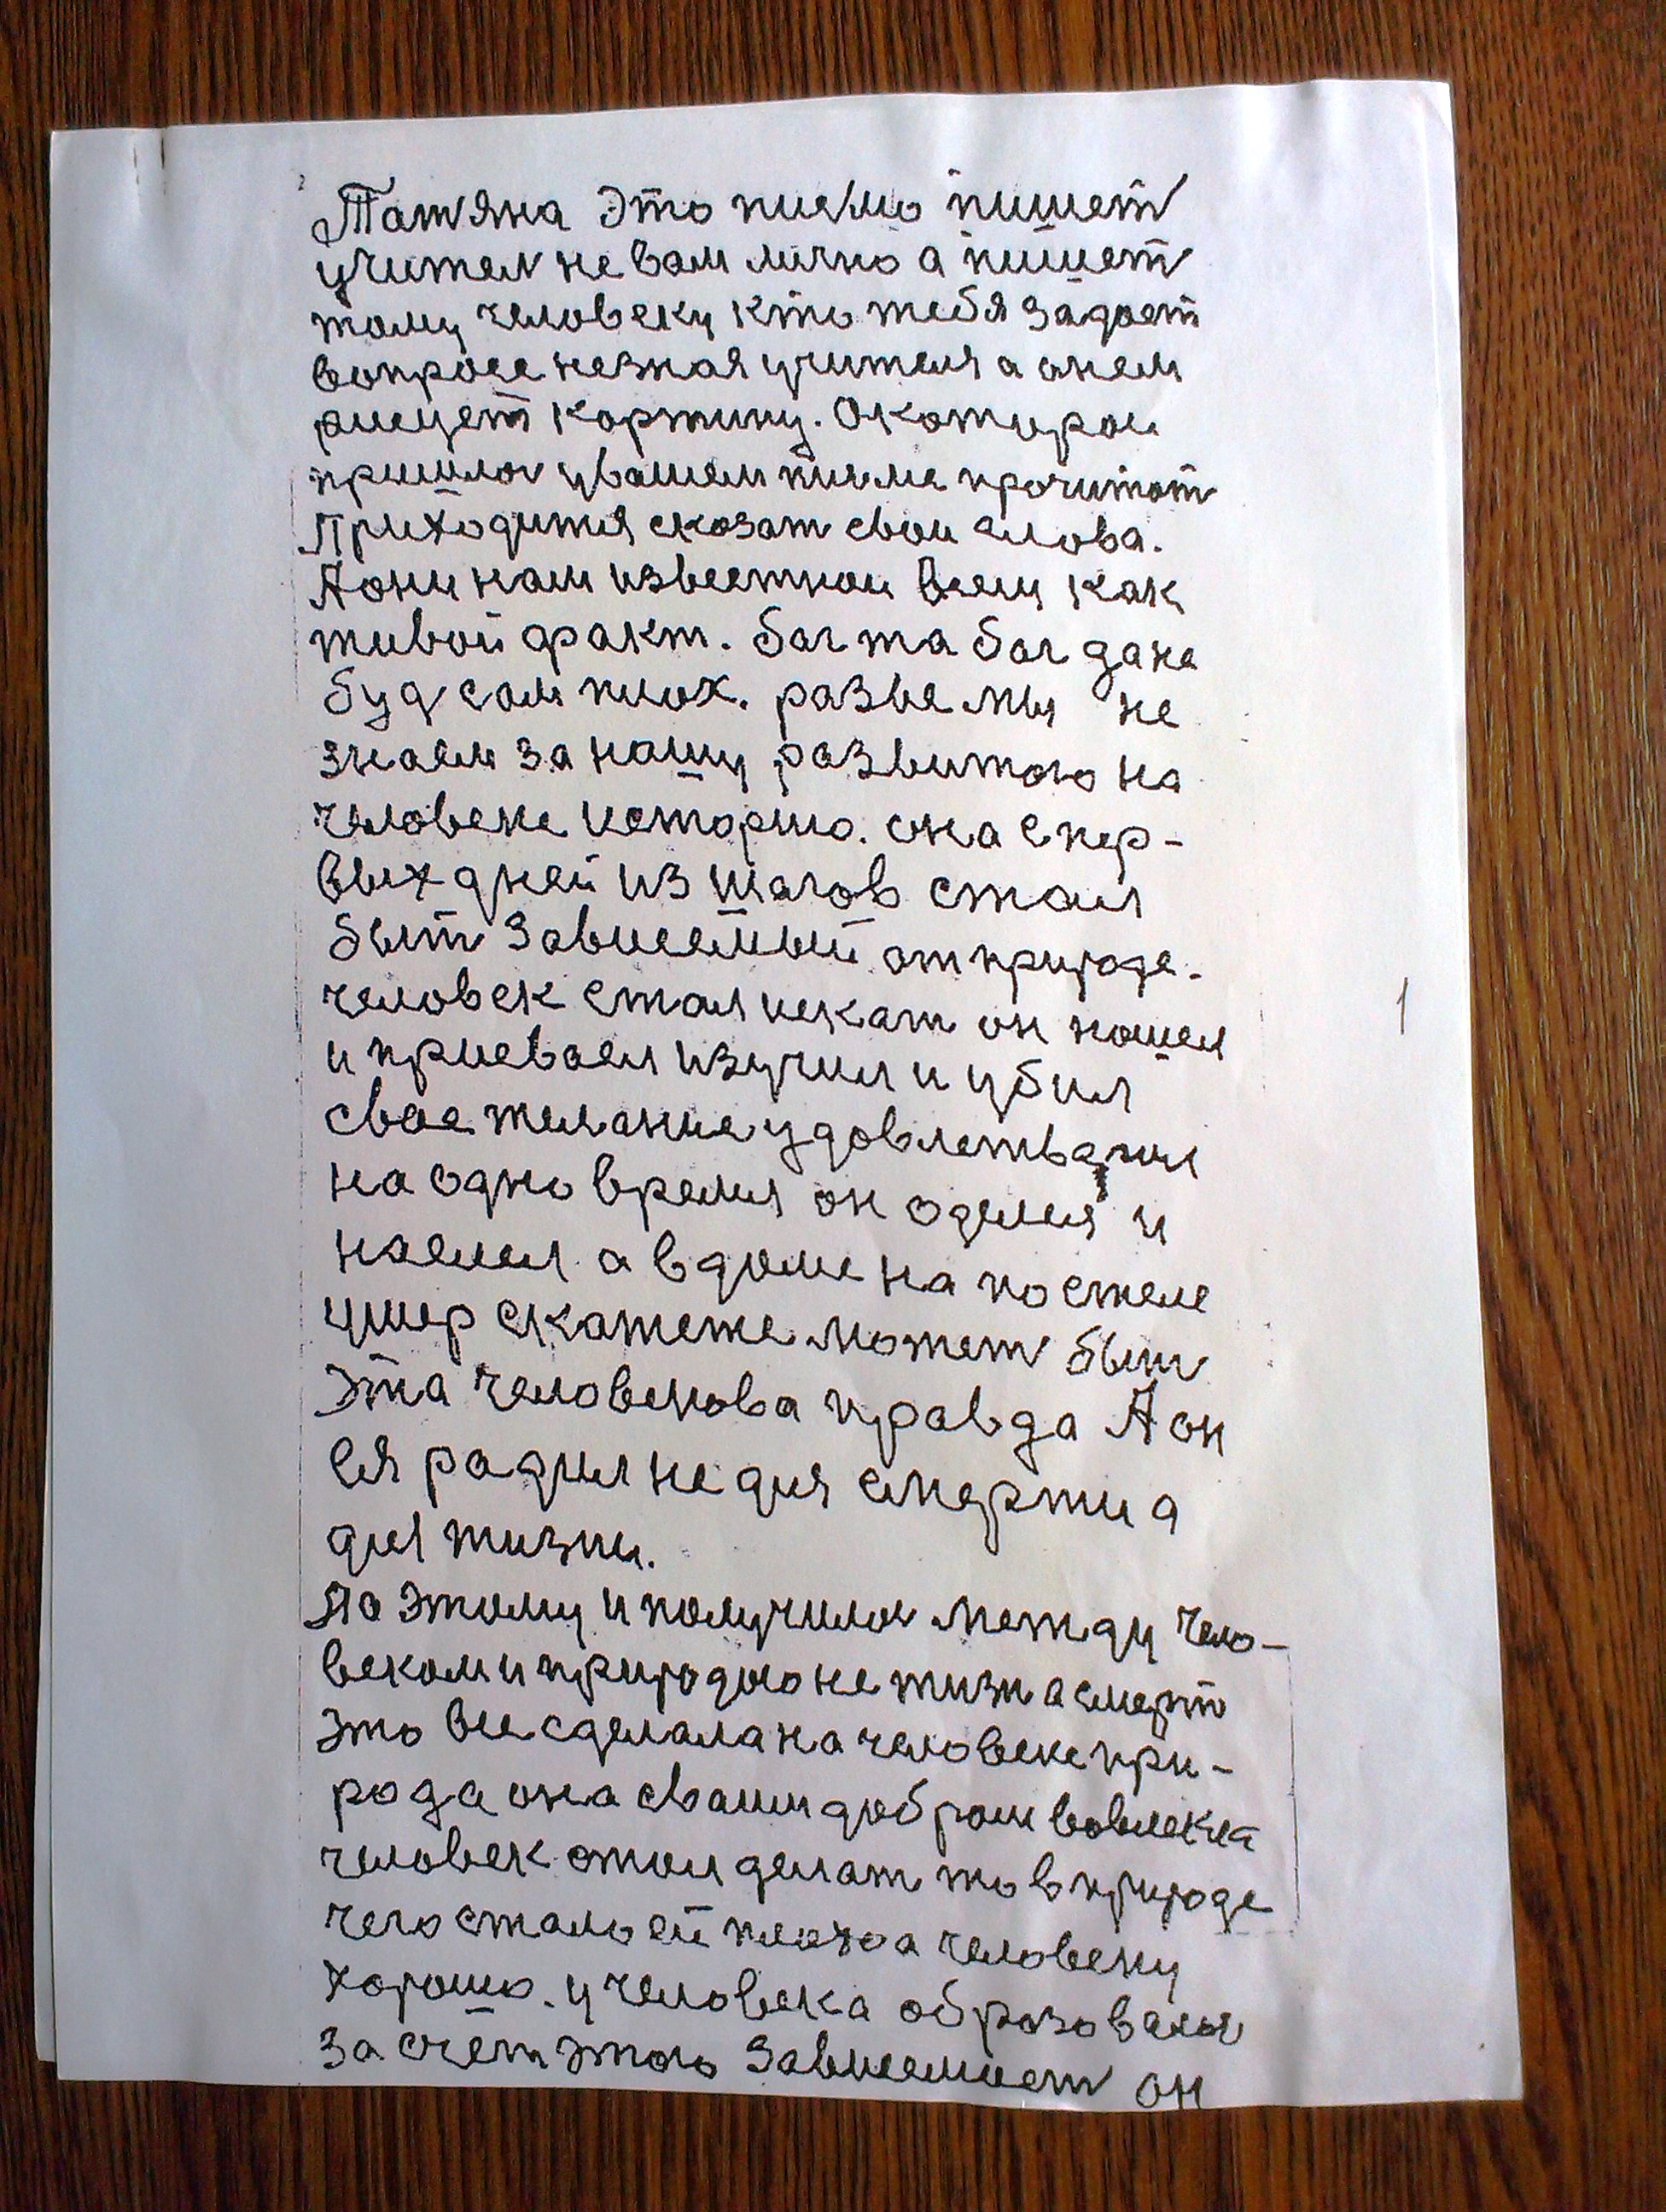 Татьяна Это писмо пишеть
учитель не вам лично а пишеть
тому человеку кто тебя задоет
вопросе незная учителя а онем
рисует картину. О котором
пришлос у вашем писме прочитат
Приходится сказат свои слова.
А они нам известнои всем как
живой факт. бог та бог да не
будь сам плох. разве мы не
знаем за нашу развитою на
человеке историю. она с пер-
вых дней из шагов стал
быть зависемый от природе.
человек стал искат он нашел
и присвоел изучил и убил
свое желание удовлетварил
на одно время он оделся и
наелся а в доме на постеле
умер скажеже может быть
Эта человекова правда А он
ся радил не для смерти а
для жизни.
Па этому и получилос между чело-
веком и природою не жизн а смерт
это все сделала на человеке при-
рода она сваим добром вовлекла
человек стал делат то в природе
чего стало ей плохо а человеку
хорошо. у человека образовалас
за счет этого зависемость он
1